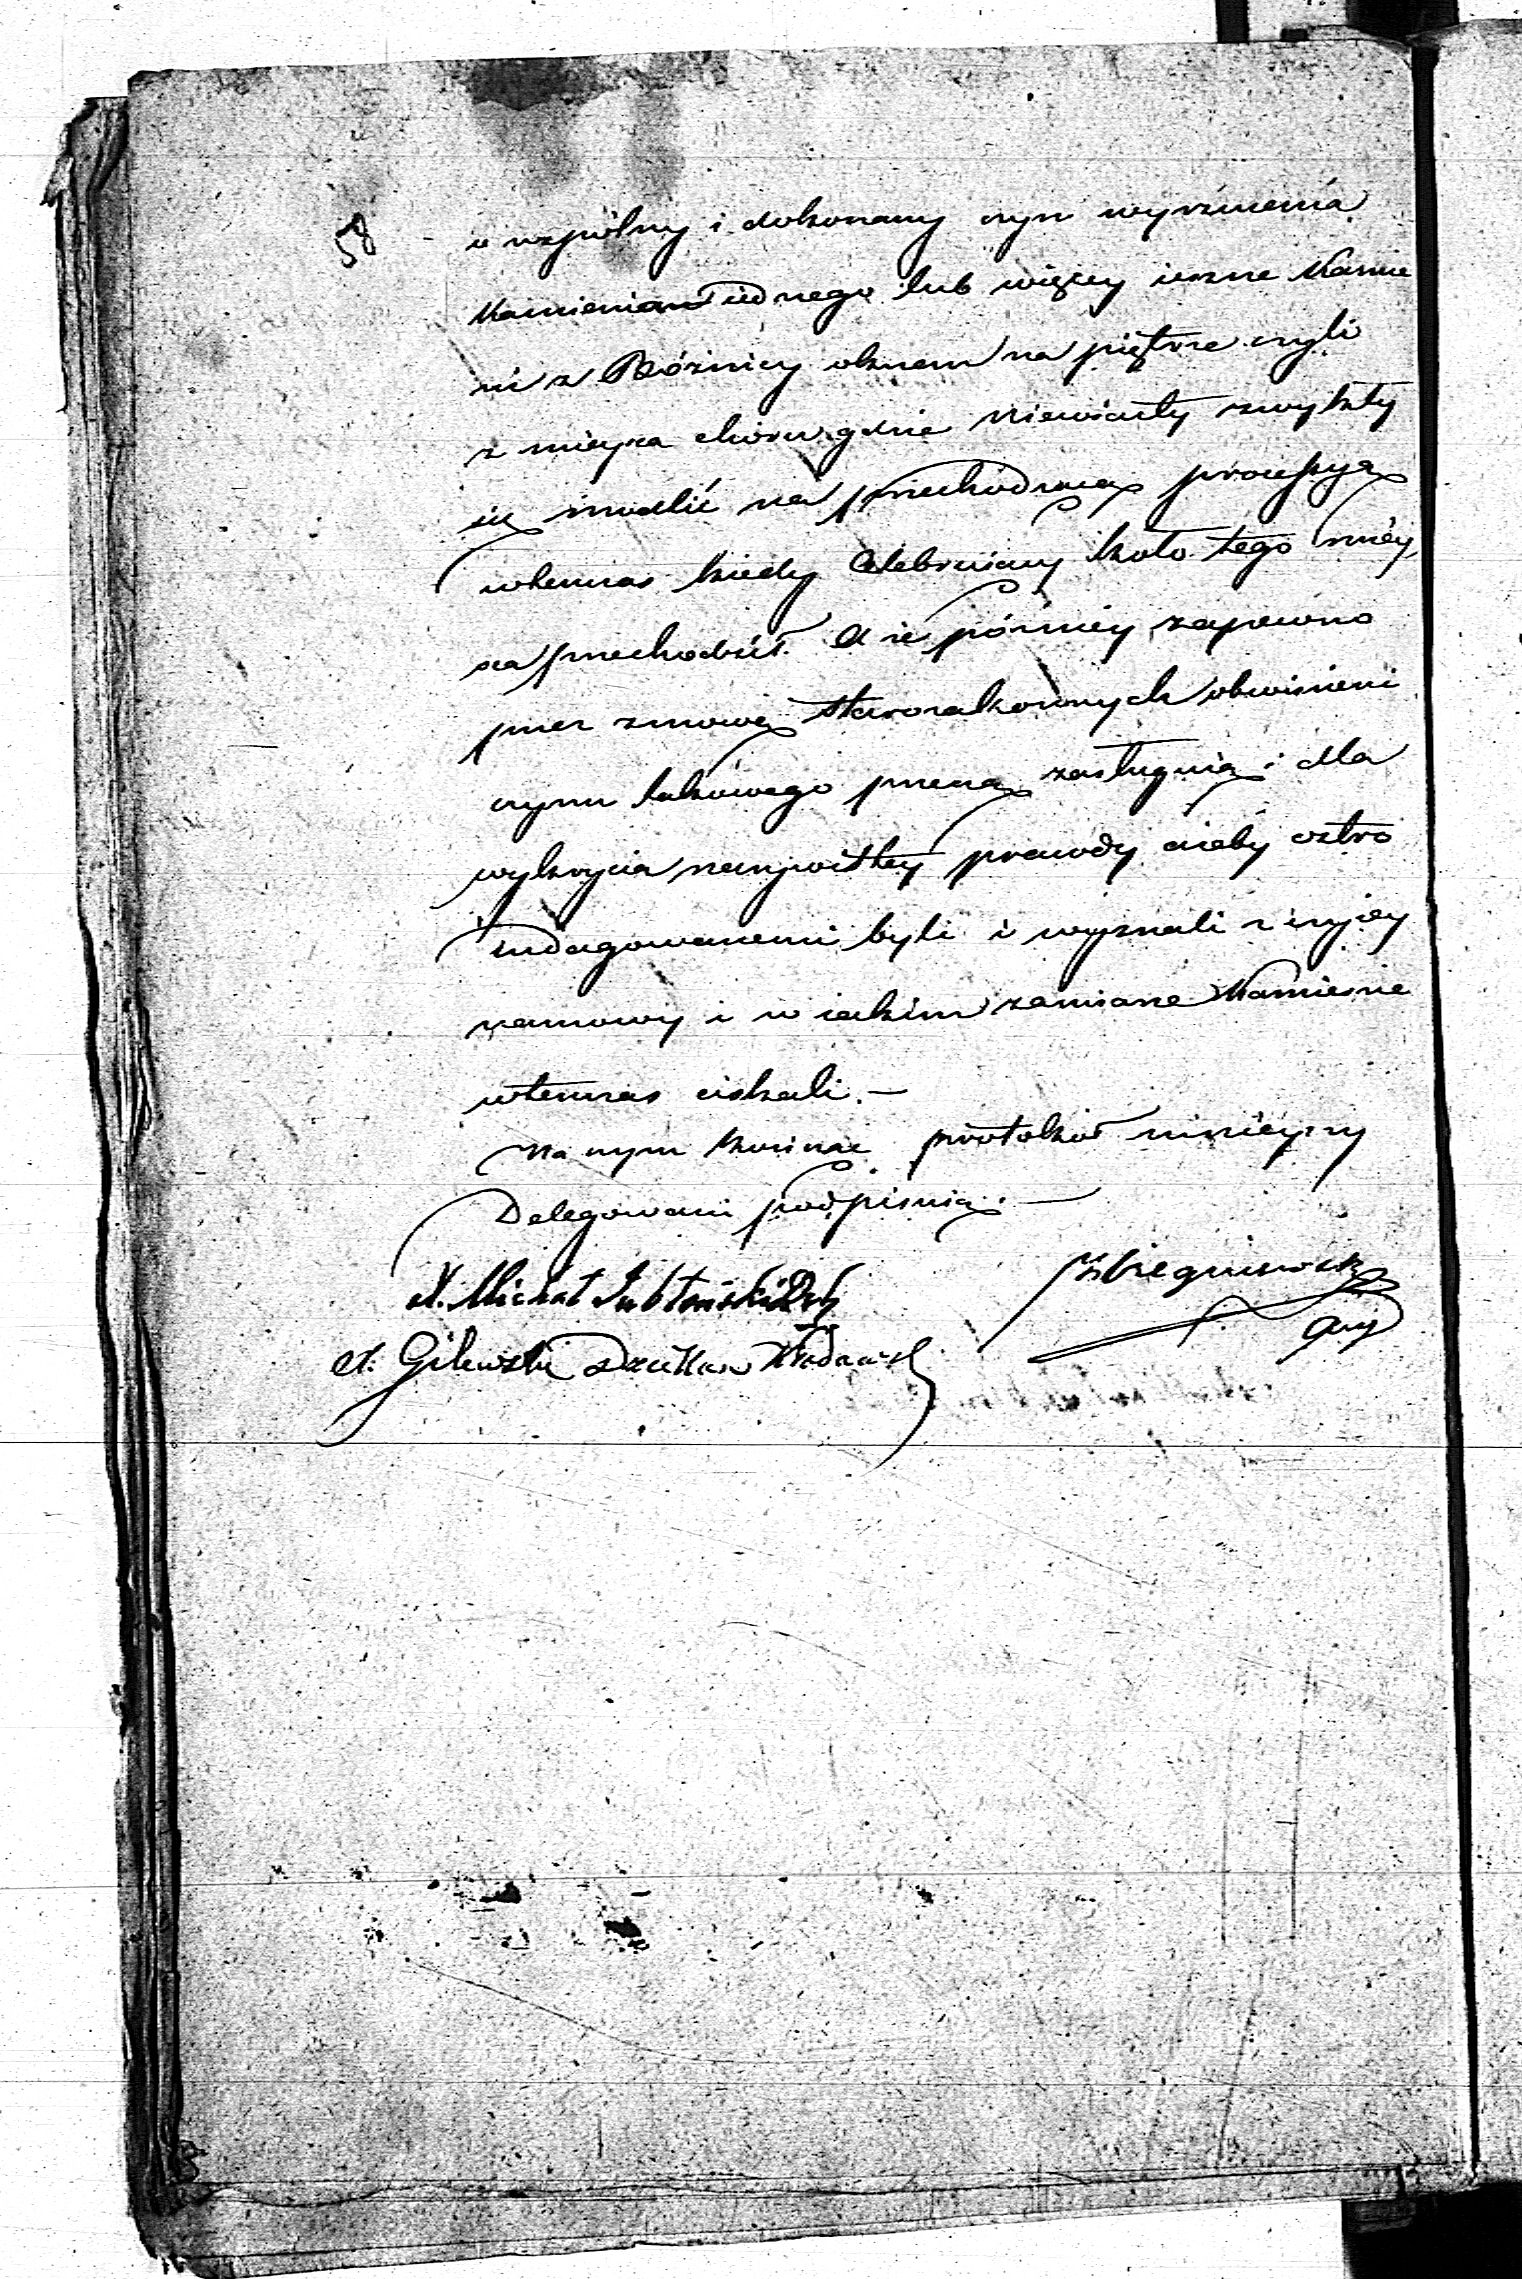 58
o wspólny i dokonany czyn wyrzucenia
Kamienia iednego lub więcey ieszcze Kamie
ni z Bóżnicy oknem na piętrze czyli
z mieysca chóru gdzie Niewiasty zwykły
się modlić na przechodzącą processyą
wtenczas kiedy Celebruiący koło tego miey
sca przechodził. A że późniéy zapewno
przez zmowę starozakonnych obwinieni
czynu takowego przeczą zasługuią i dla
wykrycia rzeczywistey prawdy ażeby ostro
indagowanemi byli i wyznali z czyiey
namowy i w iakim zamiarze Kamienie
wtenczas ciskali.—
Na czym kończąc protokół ninieyszy
Delegowani podpisuią.—
X. Michał
X. Gilewski Dziekan Włodawski